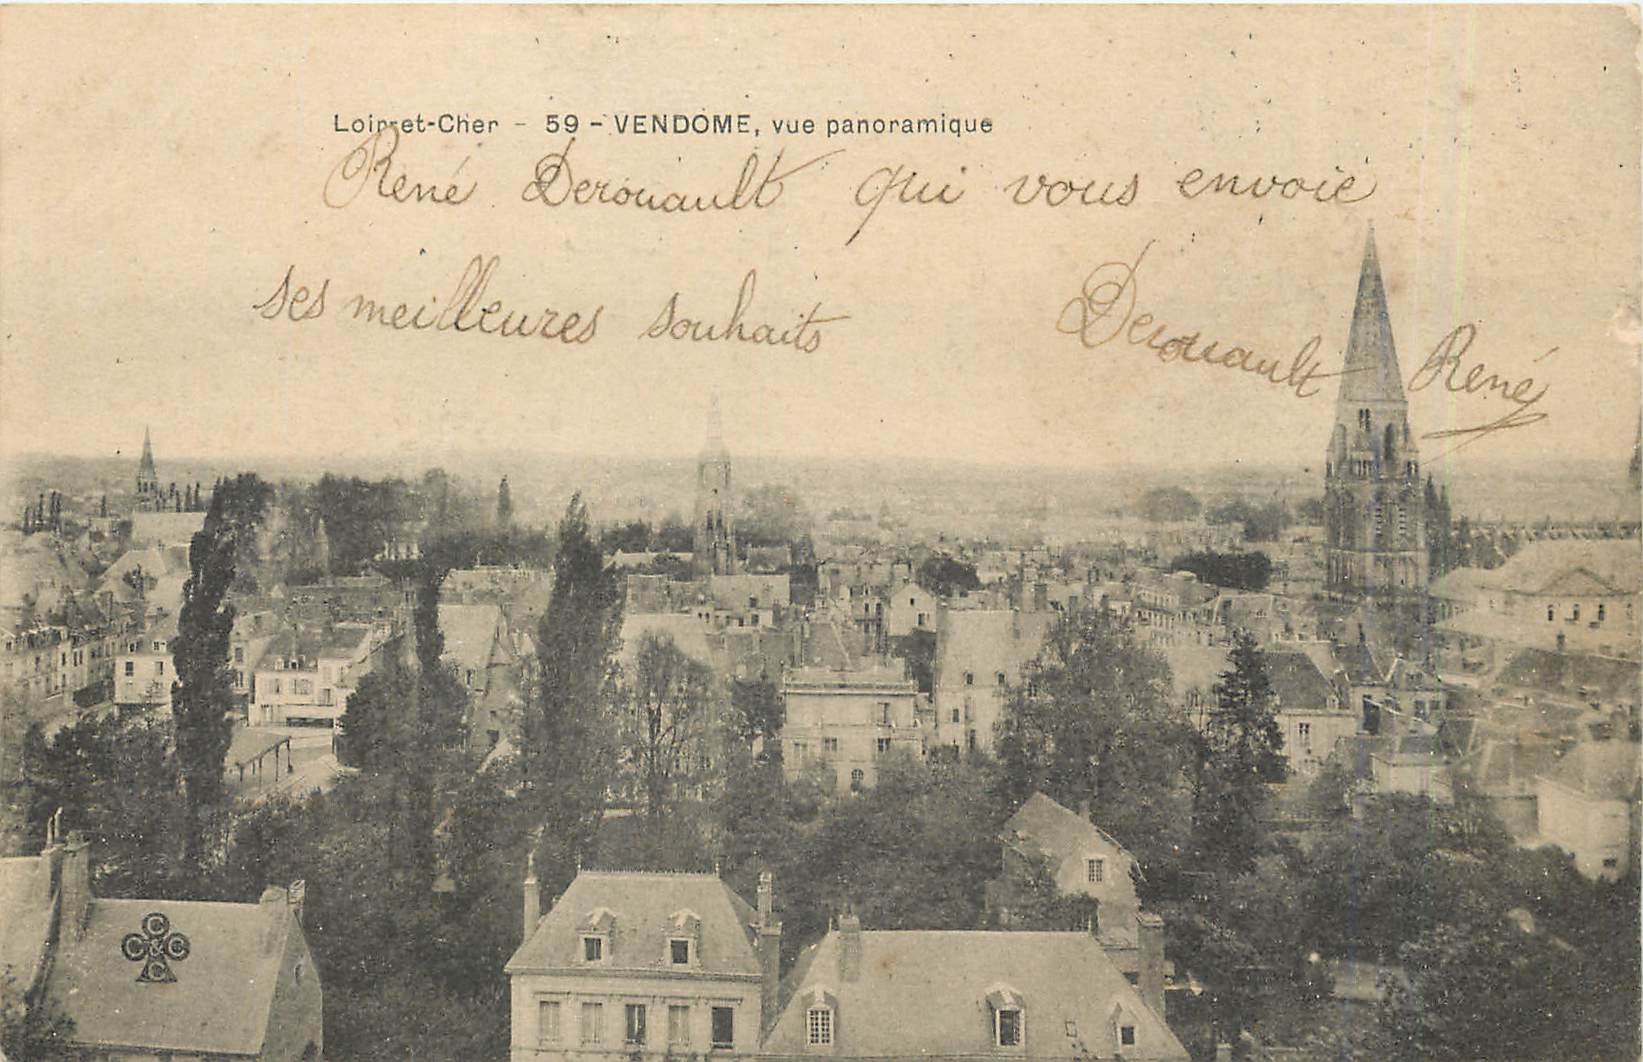 Loir-et-Cher - 59 - VENDOME, vue panoramique
René Derouault qui vous envoie
ses meilleures souhaits
Derouault René
C
C & C
C